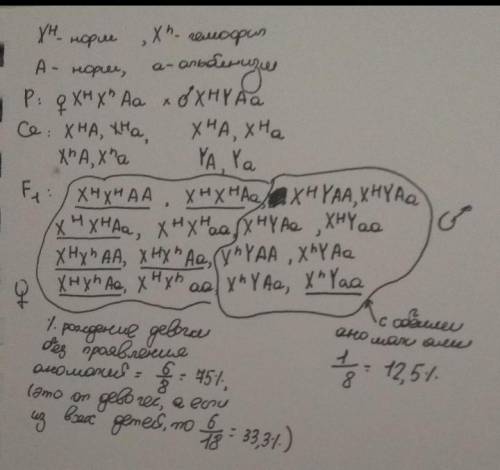 X^H - норм , X^h - гемофил
A - норм, a - альбинизм
P: ♀ X^H X^h Aa × ♂ X^H Y Aa
Ga: X^H A, X^H a, X^H A, X^H a
X^h A, X^h a YA, Ya
F₁: X^H X^H AA , X^H X^H Aa X^H Y AA, X^H Y Aa
X^H X^H Aa, X^H X^H aa, X^H Y Aa , X^H Y aa ♂
X^H X^h AA, X^H X^h Aa, X^h Y AA , X^h Y Aa
♀ X^H X^h Aa, X^H X^h aa X^h Y Aa, X^h Y aa
% рождение девочки с обеими
без проявления аномалиями
аномалий = 6/8 = 75%, 1/8 = 12,5%
(это от девочек, а если
из всех детей, то 6/18 = 33,3%)